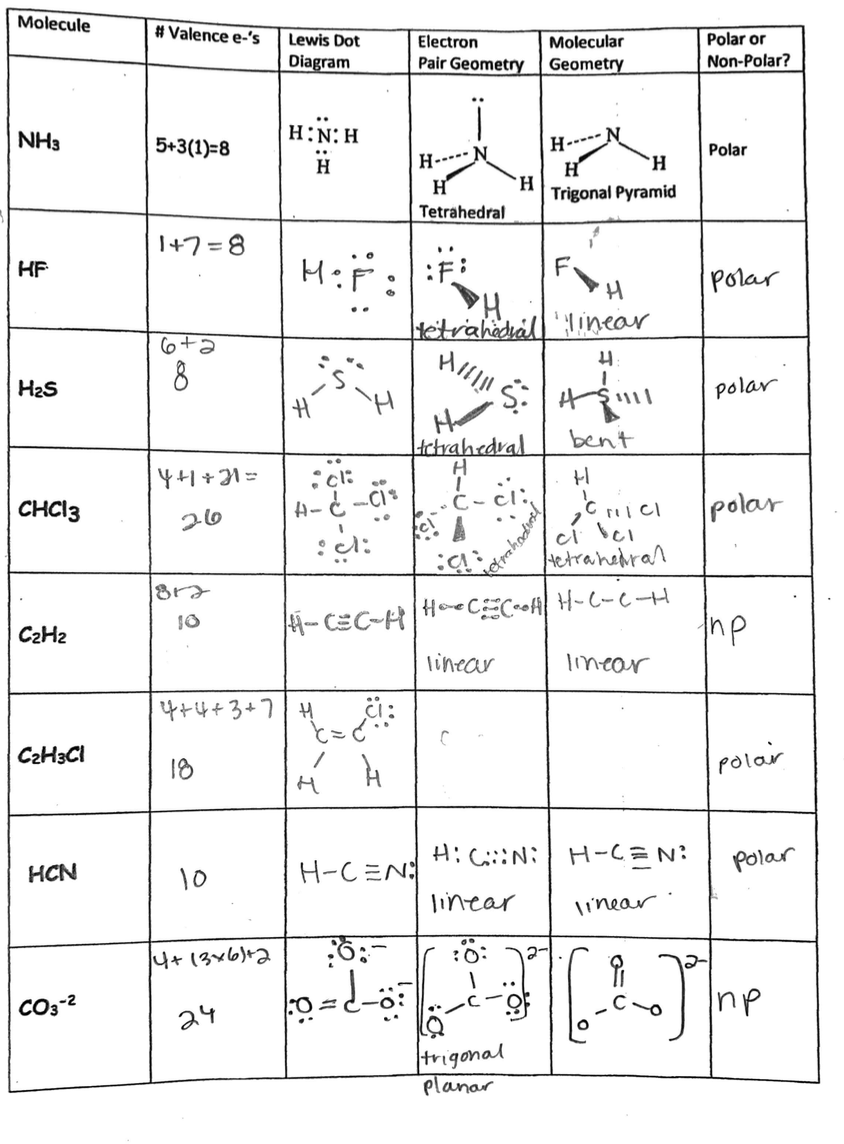 Molecule
# Valence e-'s
Lewis Dot
Diagram
Electron
Pair Geometry
Molecular
Geometry
Polar or
Non-Polar?
NH₃
5+3(1)=8
H:N:H
H
H N H
H
Tetrahedral
H N H
H
Trigonal Pyramid
Polar
HF
1+7=8
H:F:
:F:
H
tetrahedral
F
H
linear
polar
H₂S
6+2
8
S
H H
H
S:
H
tetrahedral
H
H-S
bent
polar
CHCl₃
4+1+21=
26
:Cl:
H-C-Cl:
:Cl:
H
:Cl-C-Cl:
:Cl:
tetrahedral
H
C Cl
Cl Cl
tetrahedral
polar
C₂H₂
8+2
10
H-C≡C-H
H-C≡C-H
linear
H-C-C-H
linear
np
C₂H₃Cl
4+4+3+7
18
H Cl:
C=C
H H
polar
HCN
10
H-C≡N:
H:C:::N:
linear
H-C≡N:
linear
polar
CO₃⁻²
4+(3×6)+2
24
:O:⁻
:O=C-O:⁻
:O: 2-
O-C-O:
trigonal
planar
O 2-
O-C-O
np